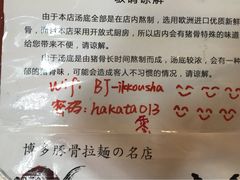 敬请谅解
由于本店汤底全部是在店内熬制,选用欧洲进口优质新鲜
骨,同时本店采用开放式厨房,所以店内会有猪骨特殊的味道
给您带来不便,请谅解。
由于汤底是由猪骨长时间熬制而成,汤底较浓,会有一
部的猪骨味,可能会造成客人不习惯的情况,请谅解。
Wifi: BJ-ikkousha
密码: hakata013
零
博多豚骨拉麺の名店